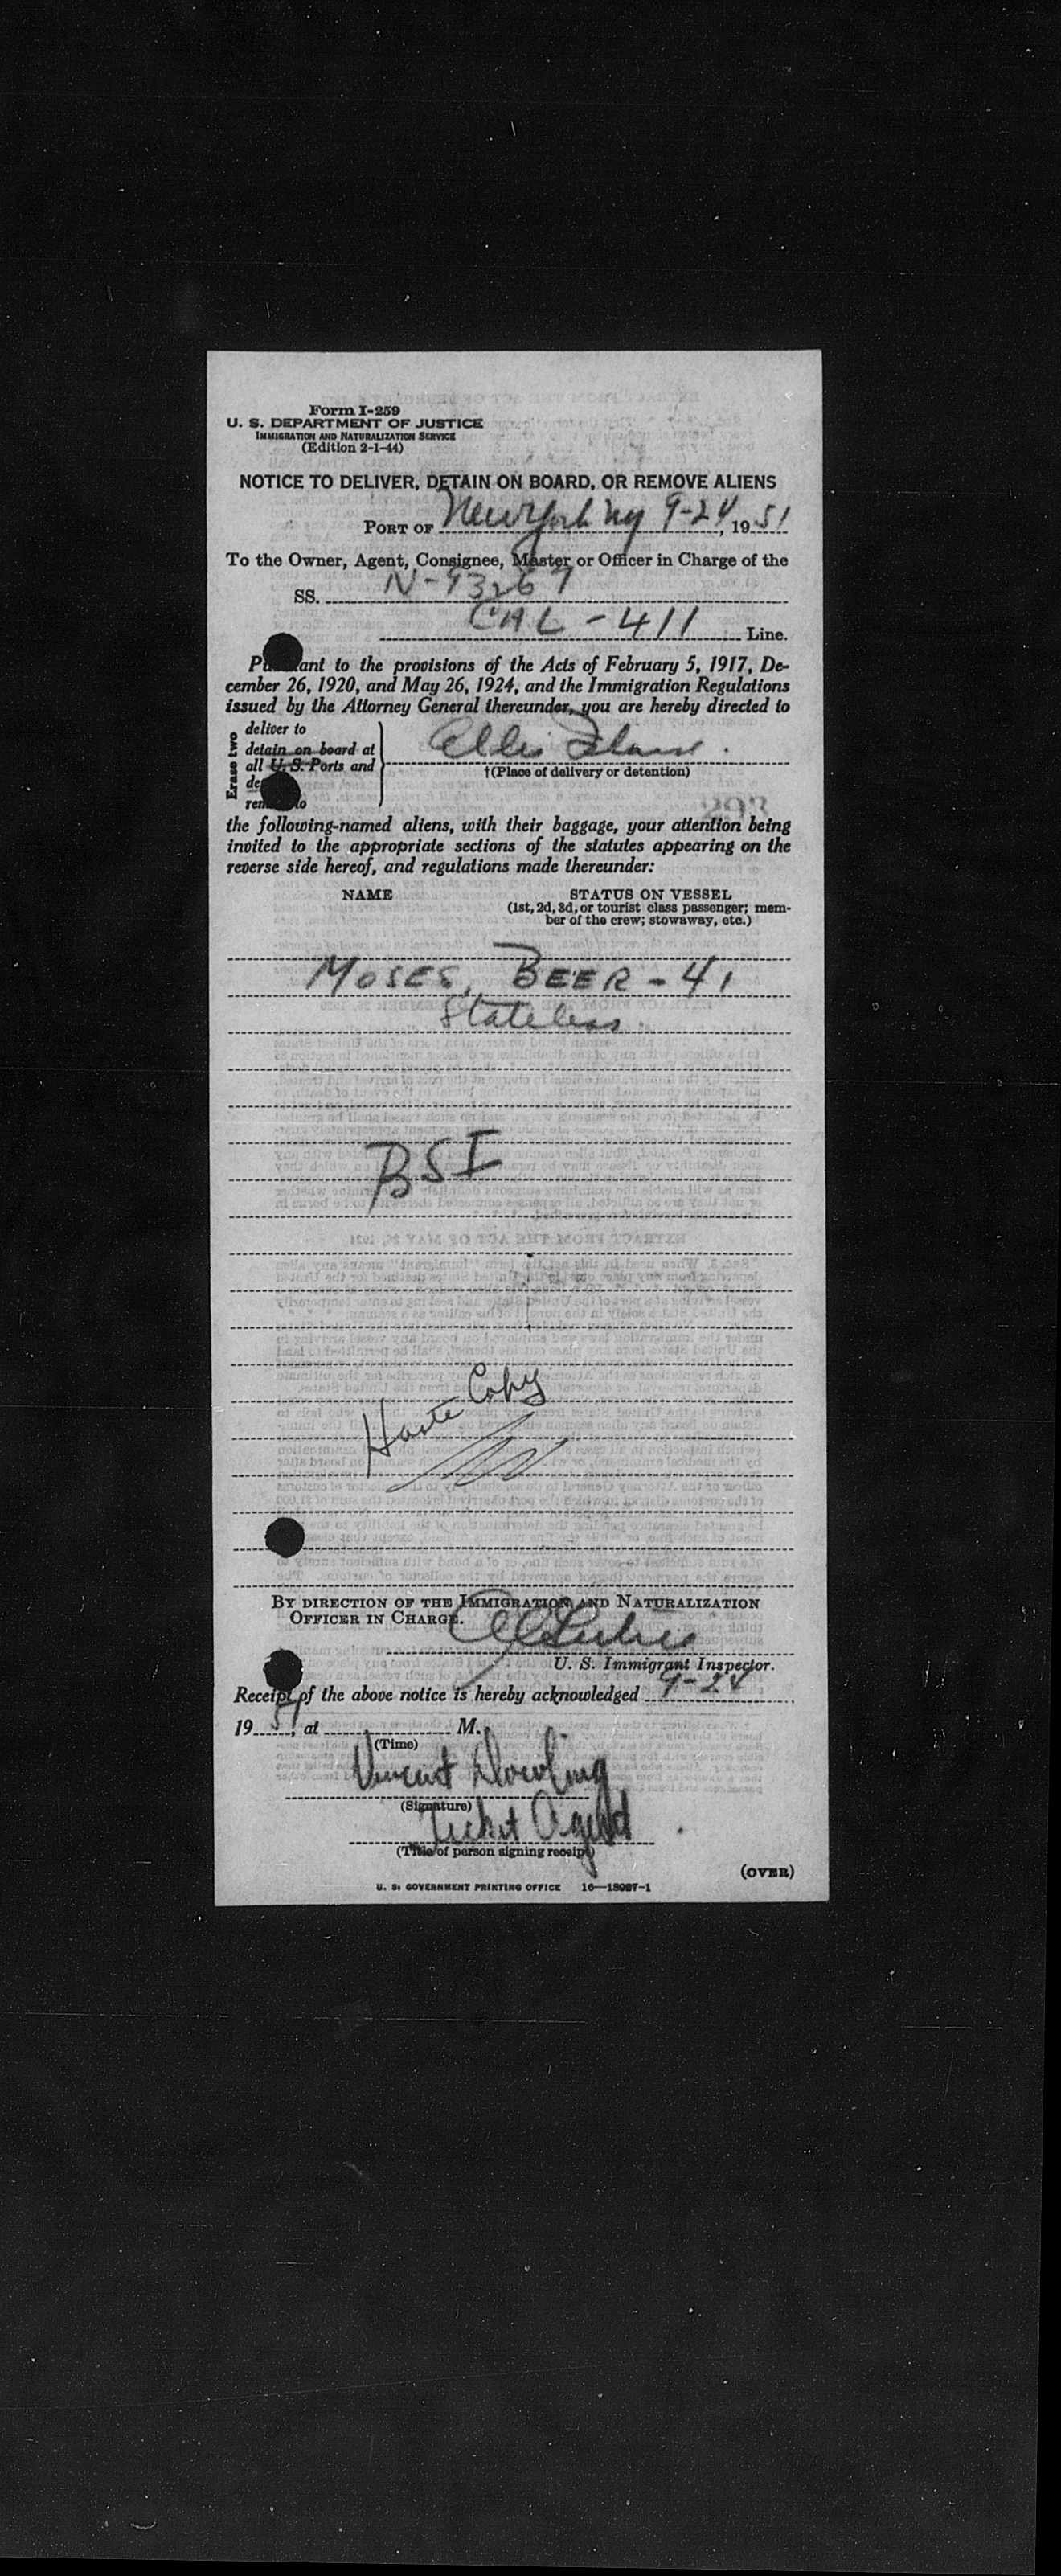 Form I-259
U. S. DEPARTMENT OF JUSTICE
IMMIGRATION AND NATURALIZATION SERVICE
(Edition 2-1-44)
NOTICE TO DELIVER, DETAIN ON BOARD, OR REMOVE ALIENS
PORT OF New York NY 9-24, 1951
To the Owner, Agent, Consignee, Master or Officer in Charge of the
SS. N-93267
CAL-411 Line.
Pu ant to the provisions of the Acts of February 5, 1917, De-
cember 26, 1920, and May 26, 1924, and the Immigration Regulations
issued by the Attorney General thereunder, you are hereby directed to
Erase two
deliver to
detain on board at
all U. S. Ports and
de
rem to
Ellis Island.
†(Place of delivery or detention)
the following-named aliens, with their baggage, your attention being
invited to the appropriate sections of the statutes appearing on the
reverse side hereof, and regulations made thereunder:
NAME STATUS ON VESSEL
(1st, 2d, 3d, or tourist class passenger; mem-
ber of the crew; stowaway, etc.)
MOSES, BEER - 41
Stateless.
BSI
Copy
BY DIRECTION OF THE IMMIGRATION AND NATURALIZATION
OFFICER IN CHARGE.
U. S. Immigrant Inspector.
Receipt of the above notice is hereby acknowledged 9-24
1951, at M.
(Time)
Vincent Dowling
(Signature)
Ticket Agent
(Title of person signing receipt)
(OVER)
U. S. GOVERNMENT PRINTING OFFICE 16—18987-1